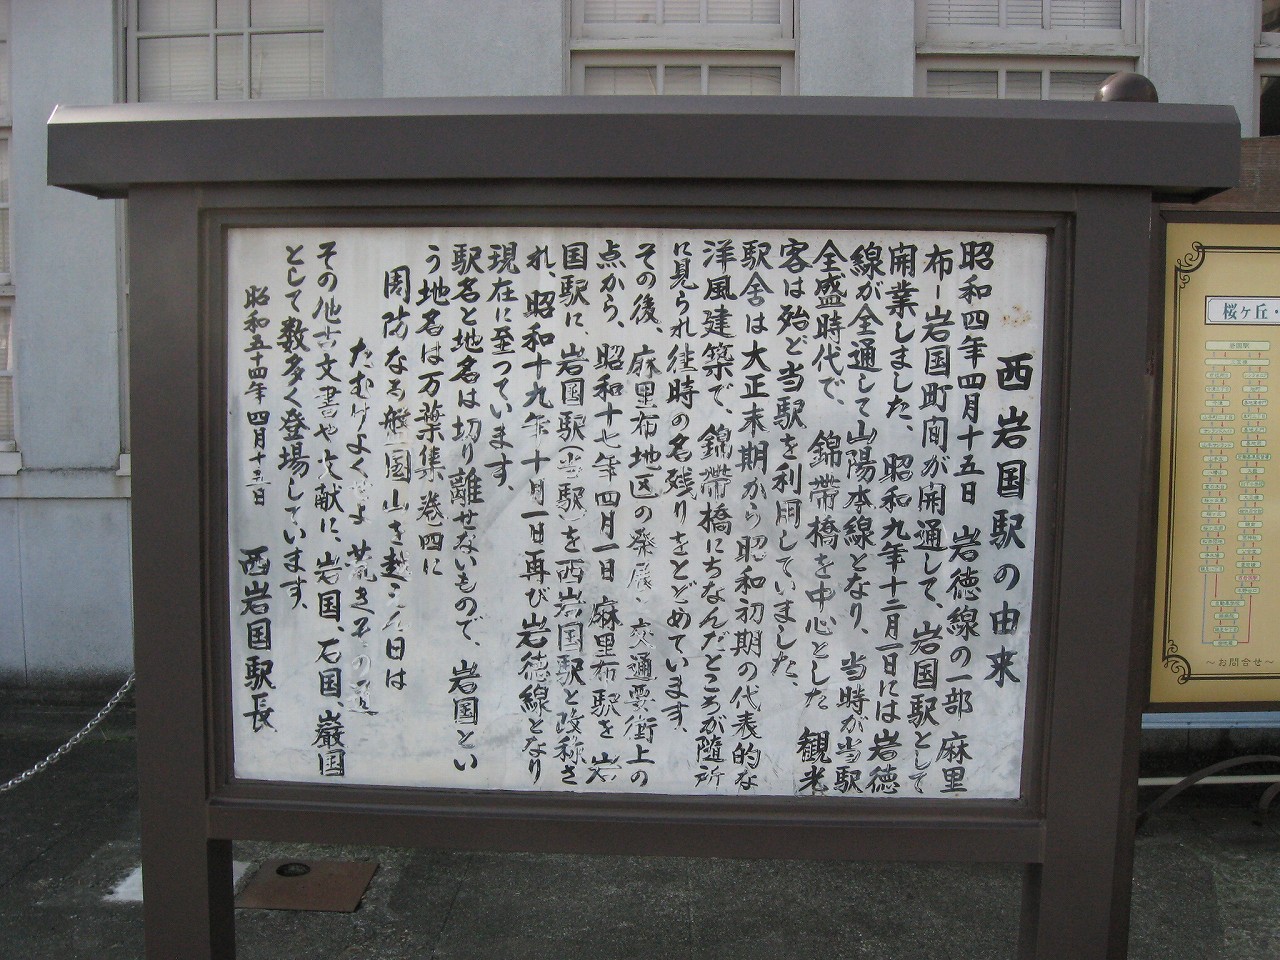 西岩国駅の由来
昭和四年四月十五日 岩徳線の一部 麻里
布-岩国町間が開通して、岩国駅として
開業しました、昭和九年十二月一日には岩徳
線が全通して山陽本線となり、当時が当駅
全盛時代で、錦帯橋を中心とした 観光
客は殆ど当駅を利用していました、
駅舎は大正末期から昭和初期の代表的な
洋風建築で、錦帯橋にちなんだところが随所
に見られ往時の名残りをとどめています、
その後、麻里布地区の発展、交通要衝上の
点から、昭和十七年四月一日 麻里布駅を 岩
国駅に、岩国駅(当駅)を西岩国駅と改称さ
れ、昭和十九年十月一日再び岩徳線となり
現在に至っています、
駅名と地名は切り離せないもので、岩国とい
う地名は万葉集巻四に
周防なる磐国山を越えん日は
たむけよくせよ 荒きその道
その他古文書や文献に、岩国、石国、巌国
として数多く登場しています、
昭和五十四年 四月十五日 西岩国駅長
桜ヶ丘・
〜お問合せ〜